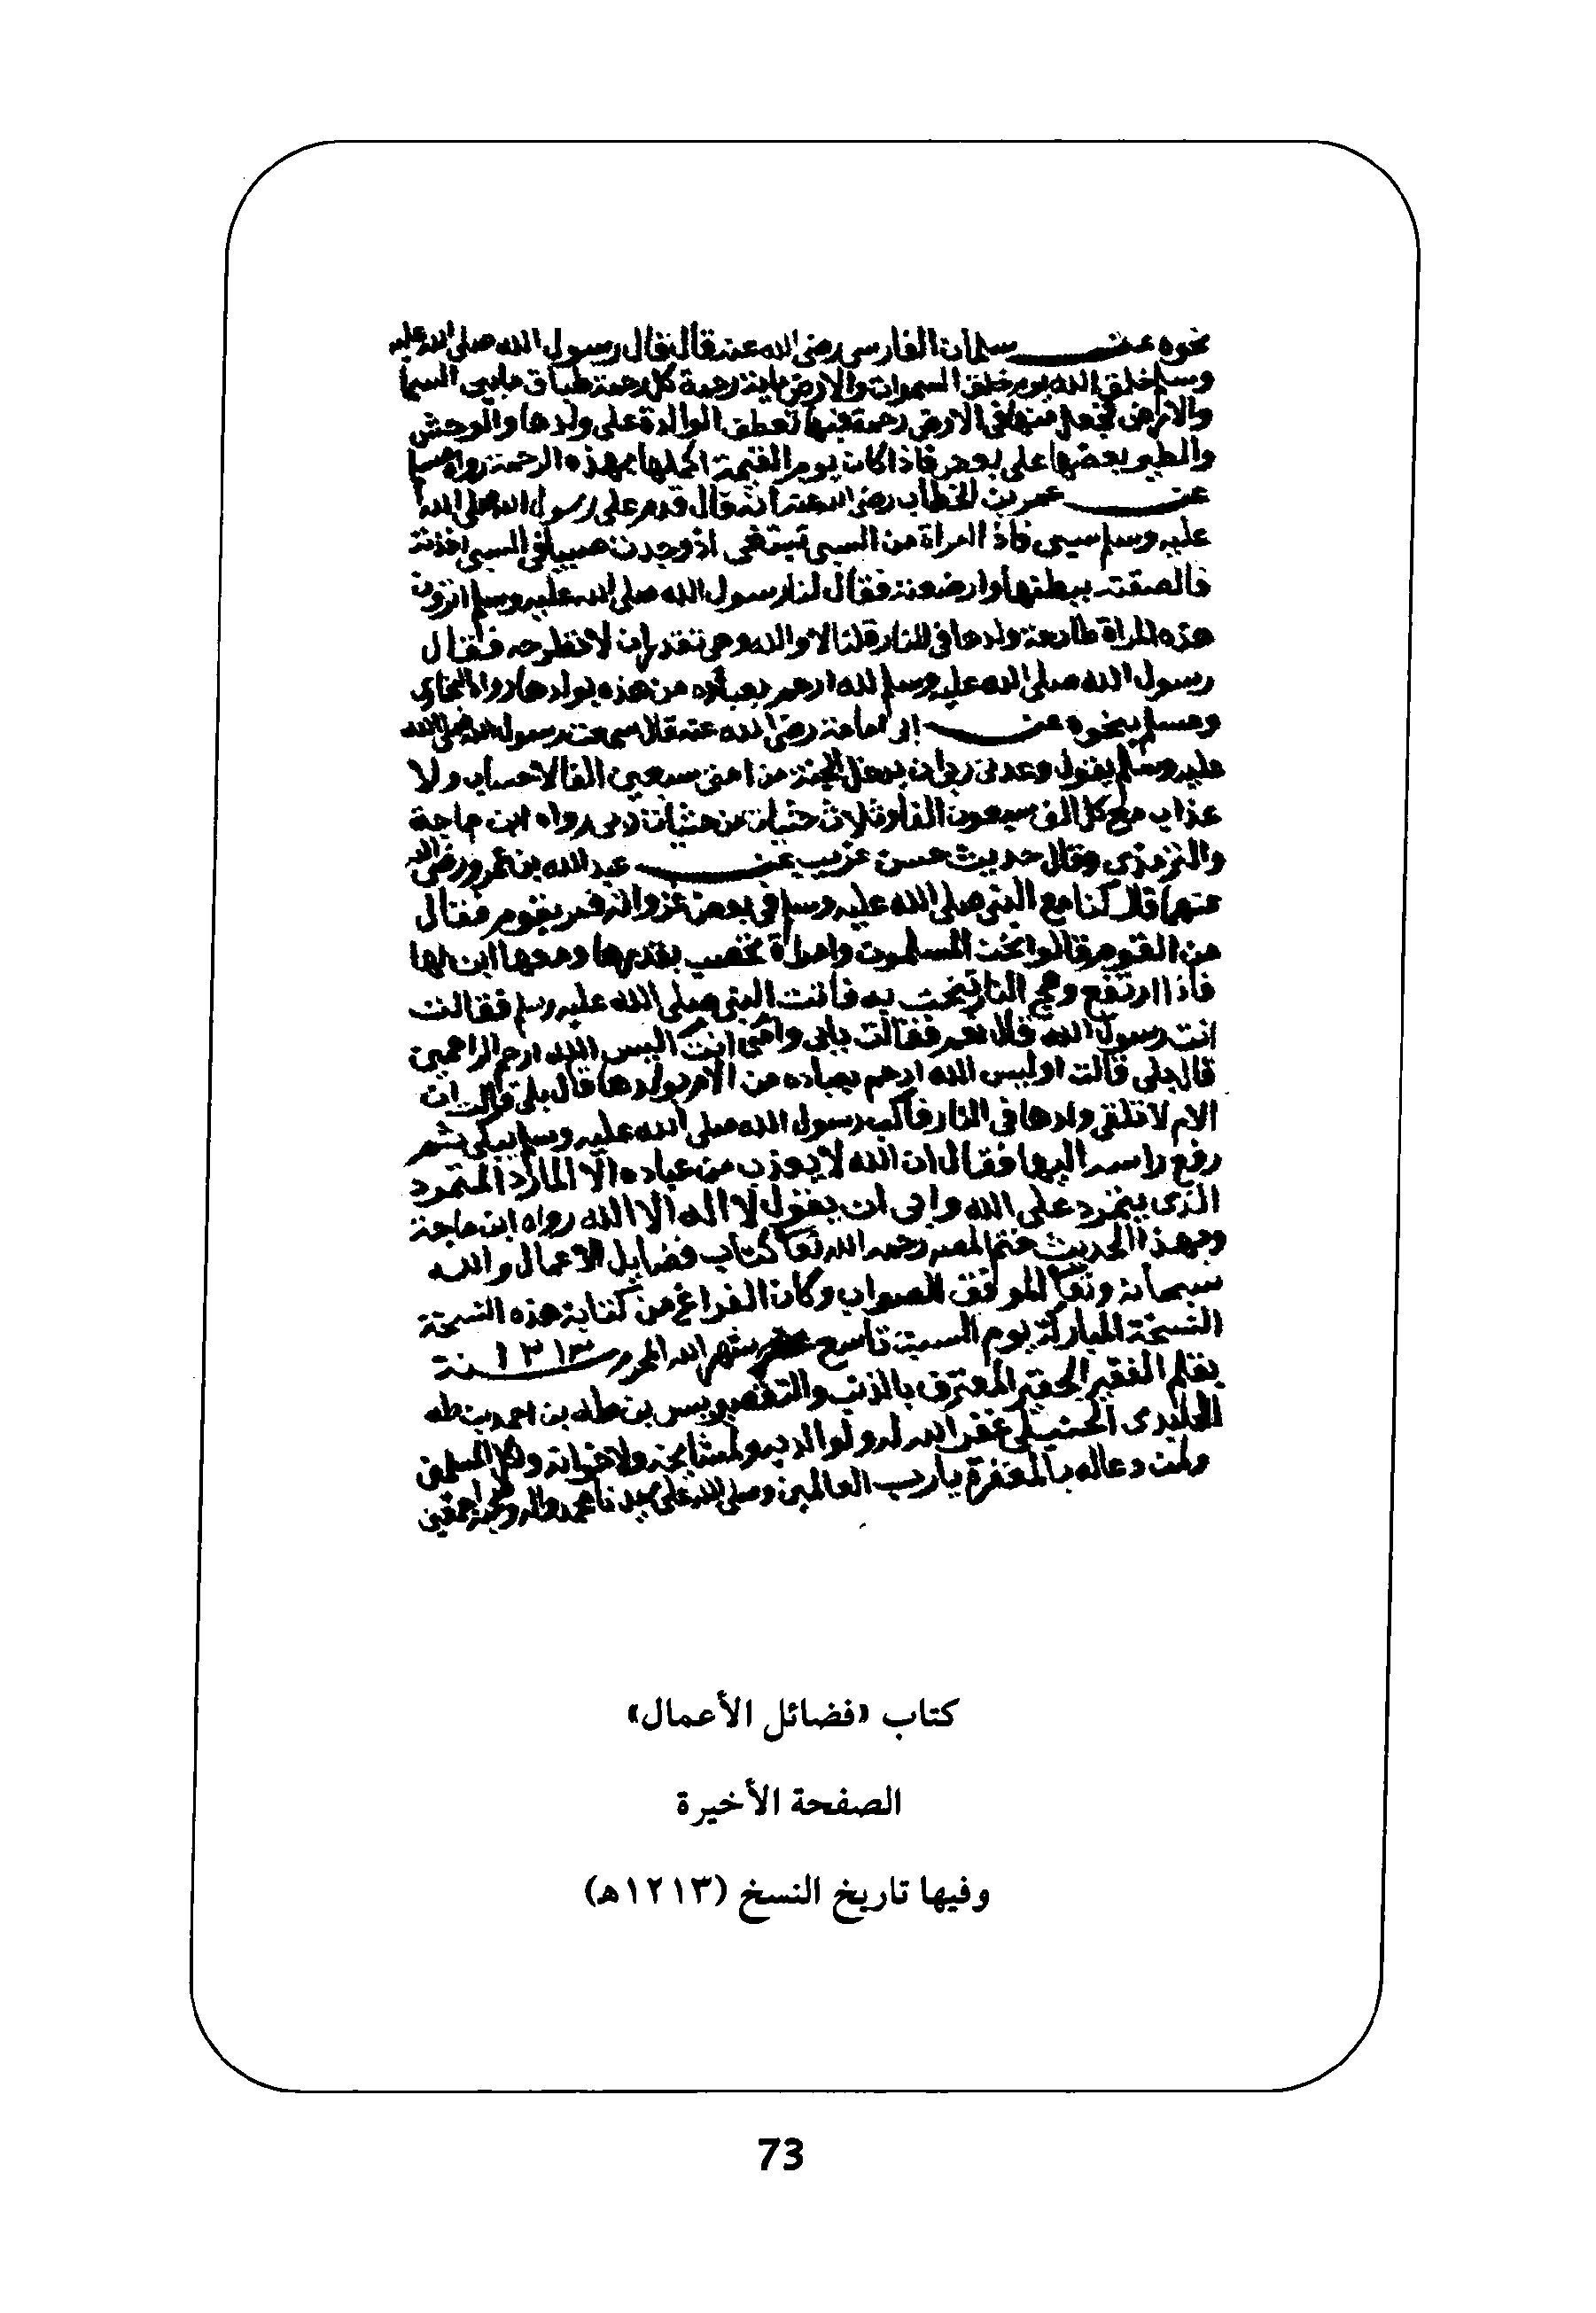 نحوه عن سلمان الفارسي رضى الله عنه قال قال رسول الله صلى الله عليه
وسلم خلق الله يوم خلق السموات والارض ماية رحمة كل رحمة طباق ما بين السما
والارض فجعل منها في الارض رحمة فبها تعطف الوالدة على ولدها والوحش
والطير بعضها على بعض فاذا كان يوم القيمة اكملها بهذه الرحمة رواه مسلم
عن عمر بن الخطاب رضى الله عنه انه قال قدم على رسول الله صلى الله
عليه وسلم سبي فاذا امراة من السبي تبتغى اذ وجدت صبيا في السبي اخذته
فالصقته ببطنها وارضعته فقال لنا رسول الله صلى الله عليه وسلم اترون
هذه المراة طارحة ولدها في النار قلنا لا والله وهي تقدر ان لا تطرحه فقال
رسول الله صلى الله عليه وسلم لله ارحم بعباده من هذه بولدها رواه البخاري
ومسلم بنحوه عن ابى امامة رضى الله عنه قال سمعت رسول الله صلى الله
عليه وسلم يقول وعدنى ربى ان يدخل الجنة من امتى سبعين الفا لا حساب ولا
عذاب مع كل الف سبعون الفا وثلاث حثيات من حثيات ربي رواه ابن ماجة
والترمذى وقال حديث حسن غريب عن عبد الله بن عمر رضى الله
عنهما قال كنا مع النبي صلى الله عليه وسلم في بعض غزواته فمر بقوم فقال
من القوم قالوا نحن المسلمون وامراة تحصب بقدرها ومعها ابن لها
فاذا ارتفع وهج النار تنحت به فاتت النبي صلى الله عليه وسلم فقالت
انت رسول الله قال نعم فقالت بابى وامى انت اليس الله ارحم الراحمين
قال بلى قالت اوليس الله ارحم بعباده من الام بولدها قال بلى قالت ان
الام لا تلقى ولدها في النار فاكب رسول الله صلى الله عليه وسلم يبكى ثم
رفع راسه اليها فقال ان الله لا يعذب من عباده الا المارد المتمرد
الذى يتمرد على الله وابى ان يقول لا اله الا الله رواه ابن ماجة
وبهذا الحديث ختم المص رحمه الله تعا كتاب فضايل الاعمال والله
سبحانه وتعا الموفق للصواب وكان الفراغ من كتابة هذه النسخة
النسخة المباركة يوم السبت تاسع شهر الله المحرم سنة ١٢١٣
بقلم الفقير الحقير المعترف بالذنب والتقصير يس بن طه بن احمد بن طه
الحنبلى غفر الله له ولوالديه ولمشايخه ولاخوانه ولكل المسلمين
ولمن دعاله بالمغفرة يا رب العالمين وصلى الله على سيدنا محمد واله وصحبه اجمعين
كتاب «فضائل الأعمال»
الصفحة الأخيرة
وفيها تاريخ النسخ (١٢١٣هـ)
73